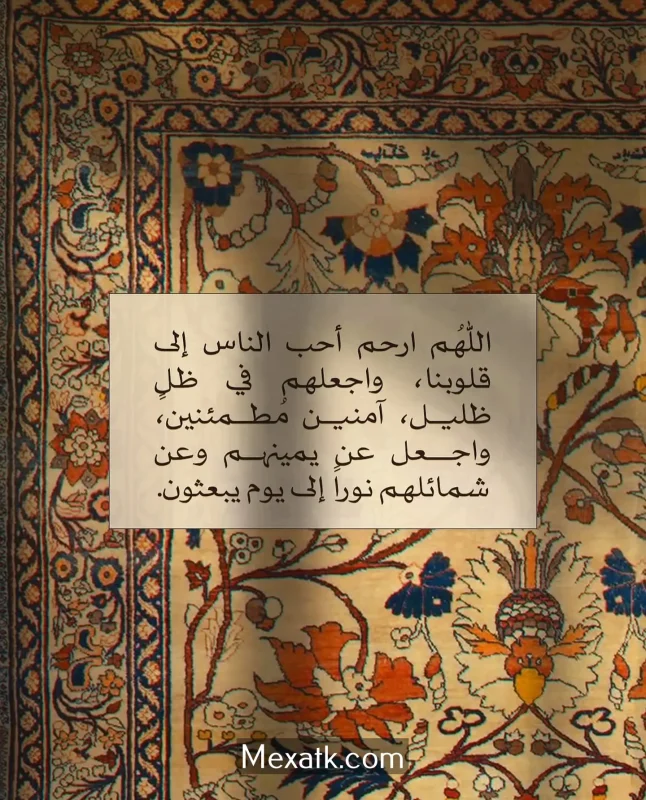 اللهُم ارحم أحب الناس إلى
قلوبنا، واجعلهم في ظلٍ
ظليل، آمنين مُطمئنين،
واجعل عن يمينهم وعن
شمائلهم نوراً إلى يوم يبعثون.
Mexatk.com